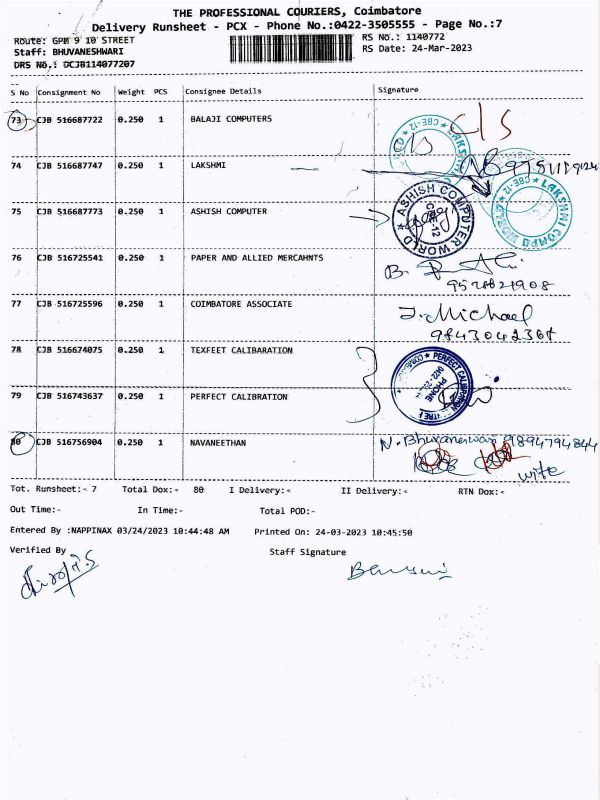 THE PROFESSIONAL COURIERS, Coimbatore
Delivery Runsheet - PCX - Phone No.:0422-3505555 - Page No.:7
Route: GPM 9 10 STREET
RS No.: 1140772
Staff: BHUVANESHWARI
RS Date: 24-Mar-2023
DRS No.: DCJB114077207
S No Consignment No Weight PCS Consignee Details Signature
73 CJB 516687722 0.250 1 BALAJI COMPUTERS C/S
74 CJB 516687747 0.250 1 LAKSHMI
75 CJB 516687773 0.250 1 ASHISH COMPUTER
ASHISH COMPUTER WORLD
LAKSHMI COMPU WORLD CBE-12
76 CJB 516725541 0.250 1 PAPER AND ALLIED MERCAHNTS
77 CJB 516725596 0.250 1 COIMBATORE ASSOCIATE
J. Michael
9843042368
78 CJB 516674075 0.250 1 TEXFEET CALIBARATION
79 CJB 516743637 0.250 1 PERFECT CALIBRATION
PERFECT CALIBRATION
PHONE
80 CJB 516756904 0.250 1 NAVANEETHAN
N. Bhuvaneswari 9894794844
wife
Tot. Runsheet:- 7 Total Dox:- 80 I Delivery:- II Delivery:- RTN Dox:-
Out Time:- In Time:- Total POD:-
Entered By :NAPPINAX 03/24/2023 10:44:48 AM Printed On: 24-03-2023 10:45:50
Verified By Staff Signature